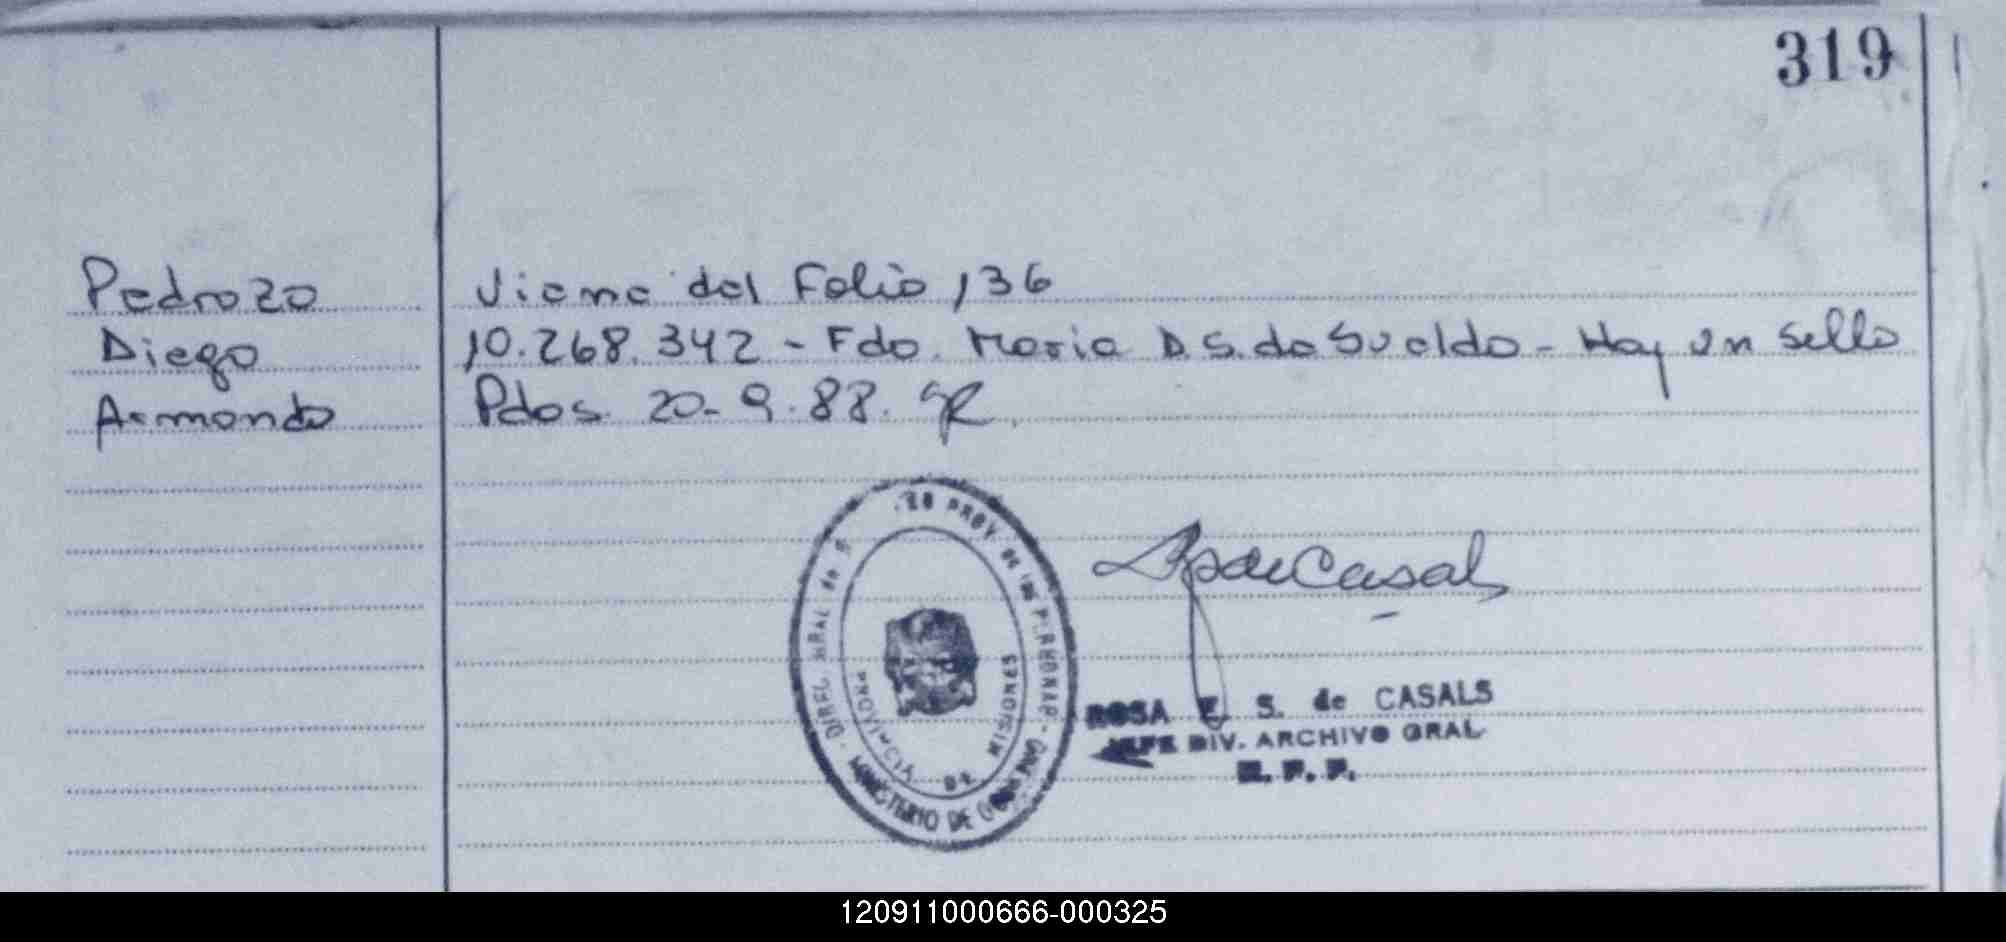 319
Pedrozo
Diego
Armando
Viene del Folio 136
10.268.342 - Fdo. Maria D. S. de Sualdo - Hay un sello
Pdos. 20-9-88.
DIREC. GRAL de PROV. DE LAS PERSONAS
MINISTERIO DE GOBIERNO
PROVINCIA DE MISIONES
de Casals
ROSA E S. de CASALS
JEFE DIV. ARCHIVO GRAL
R. P. P.
120911000666-000325